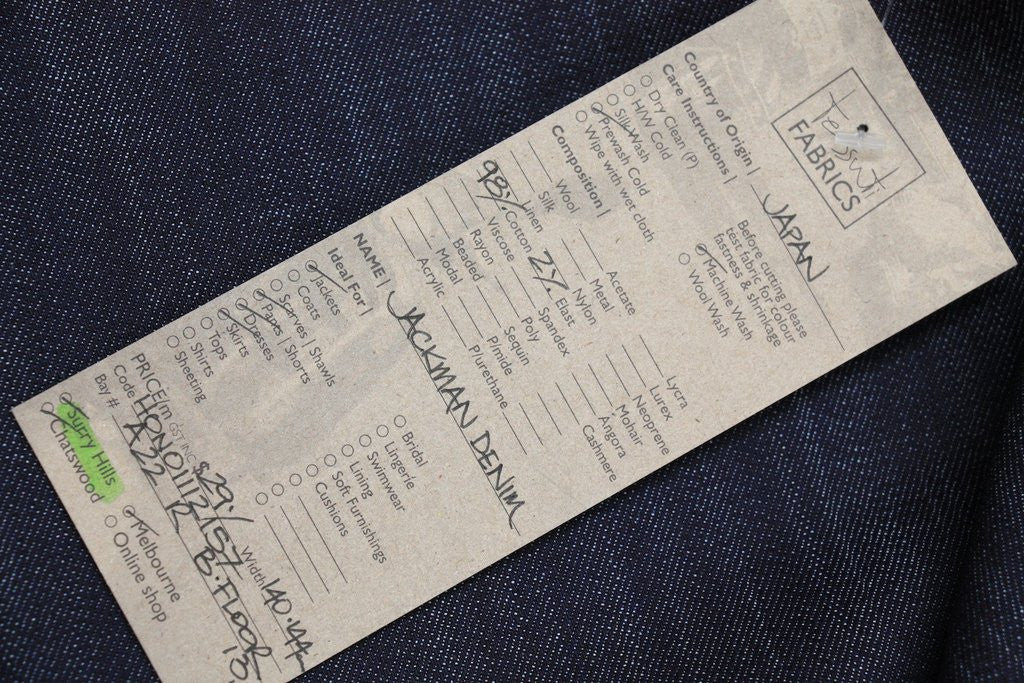 Tessuti
FABRICS
Country of Origin | JAPAN
Care Instructions |
Dry Clean (P)
H/W Cold
Silk Wash
Prewash Cold
Wipe with wet cloth
Before cutting please
test fabric for colour
fastness & shrinkage
Machine Wash
Wool Wash
Composition |
Wool
Silk
Linen
98% Cotton
Viscose
Rayon
Beaded
Modal
Acrylic
Acetate
Metal
Nylon
2% Elast
Spandex
Poly
Sequin
P/mide
P/urethane
Lycra
Lurex
Neoprene
Mohair
Angora
Cashmere
NAME | JACKMAN DENIM
Ideal For |
Jackets
Coats
Scarves | Shawls
Pants | Shorts
Dresses
Skirts
Tops
Shirts
Sheeting
Bridal
Lingerie
Swimwear
Lining
Soft Furnishings
Cushions
PRICE/m GST INC $29./ Width 140.44
Code HON01112/157
Bay # A22 R B.FLOOR
Surry Hills
Chatswood
Melbourne
Online shop